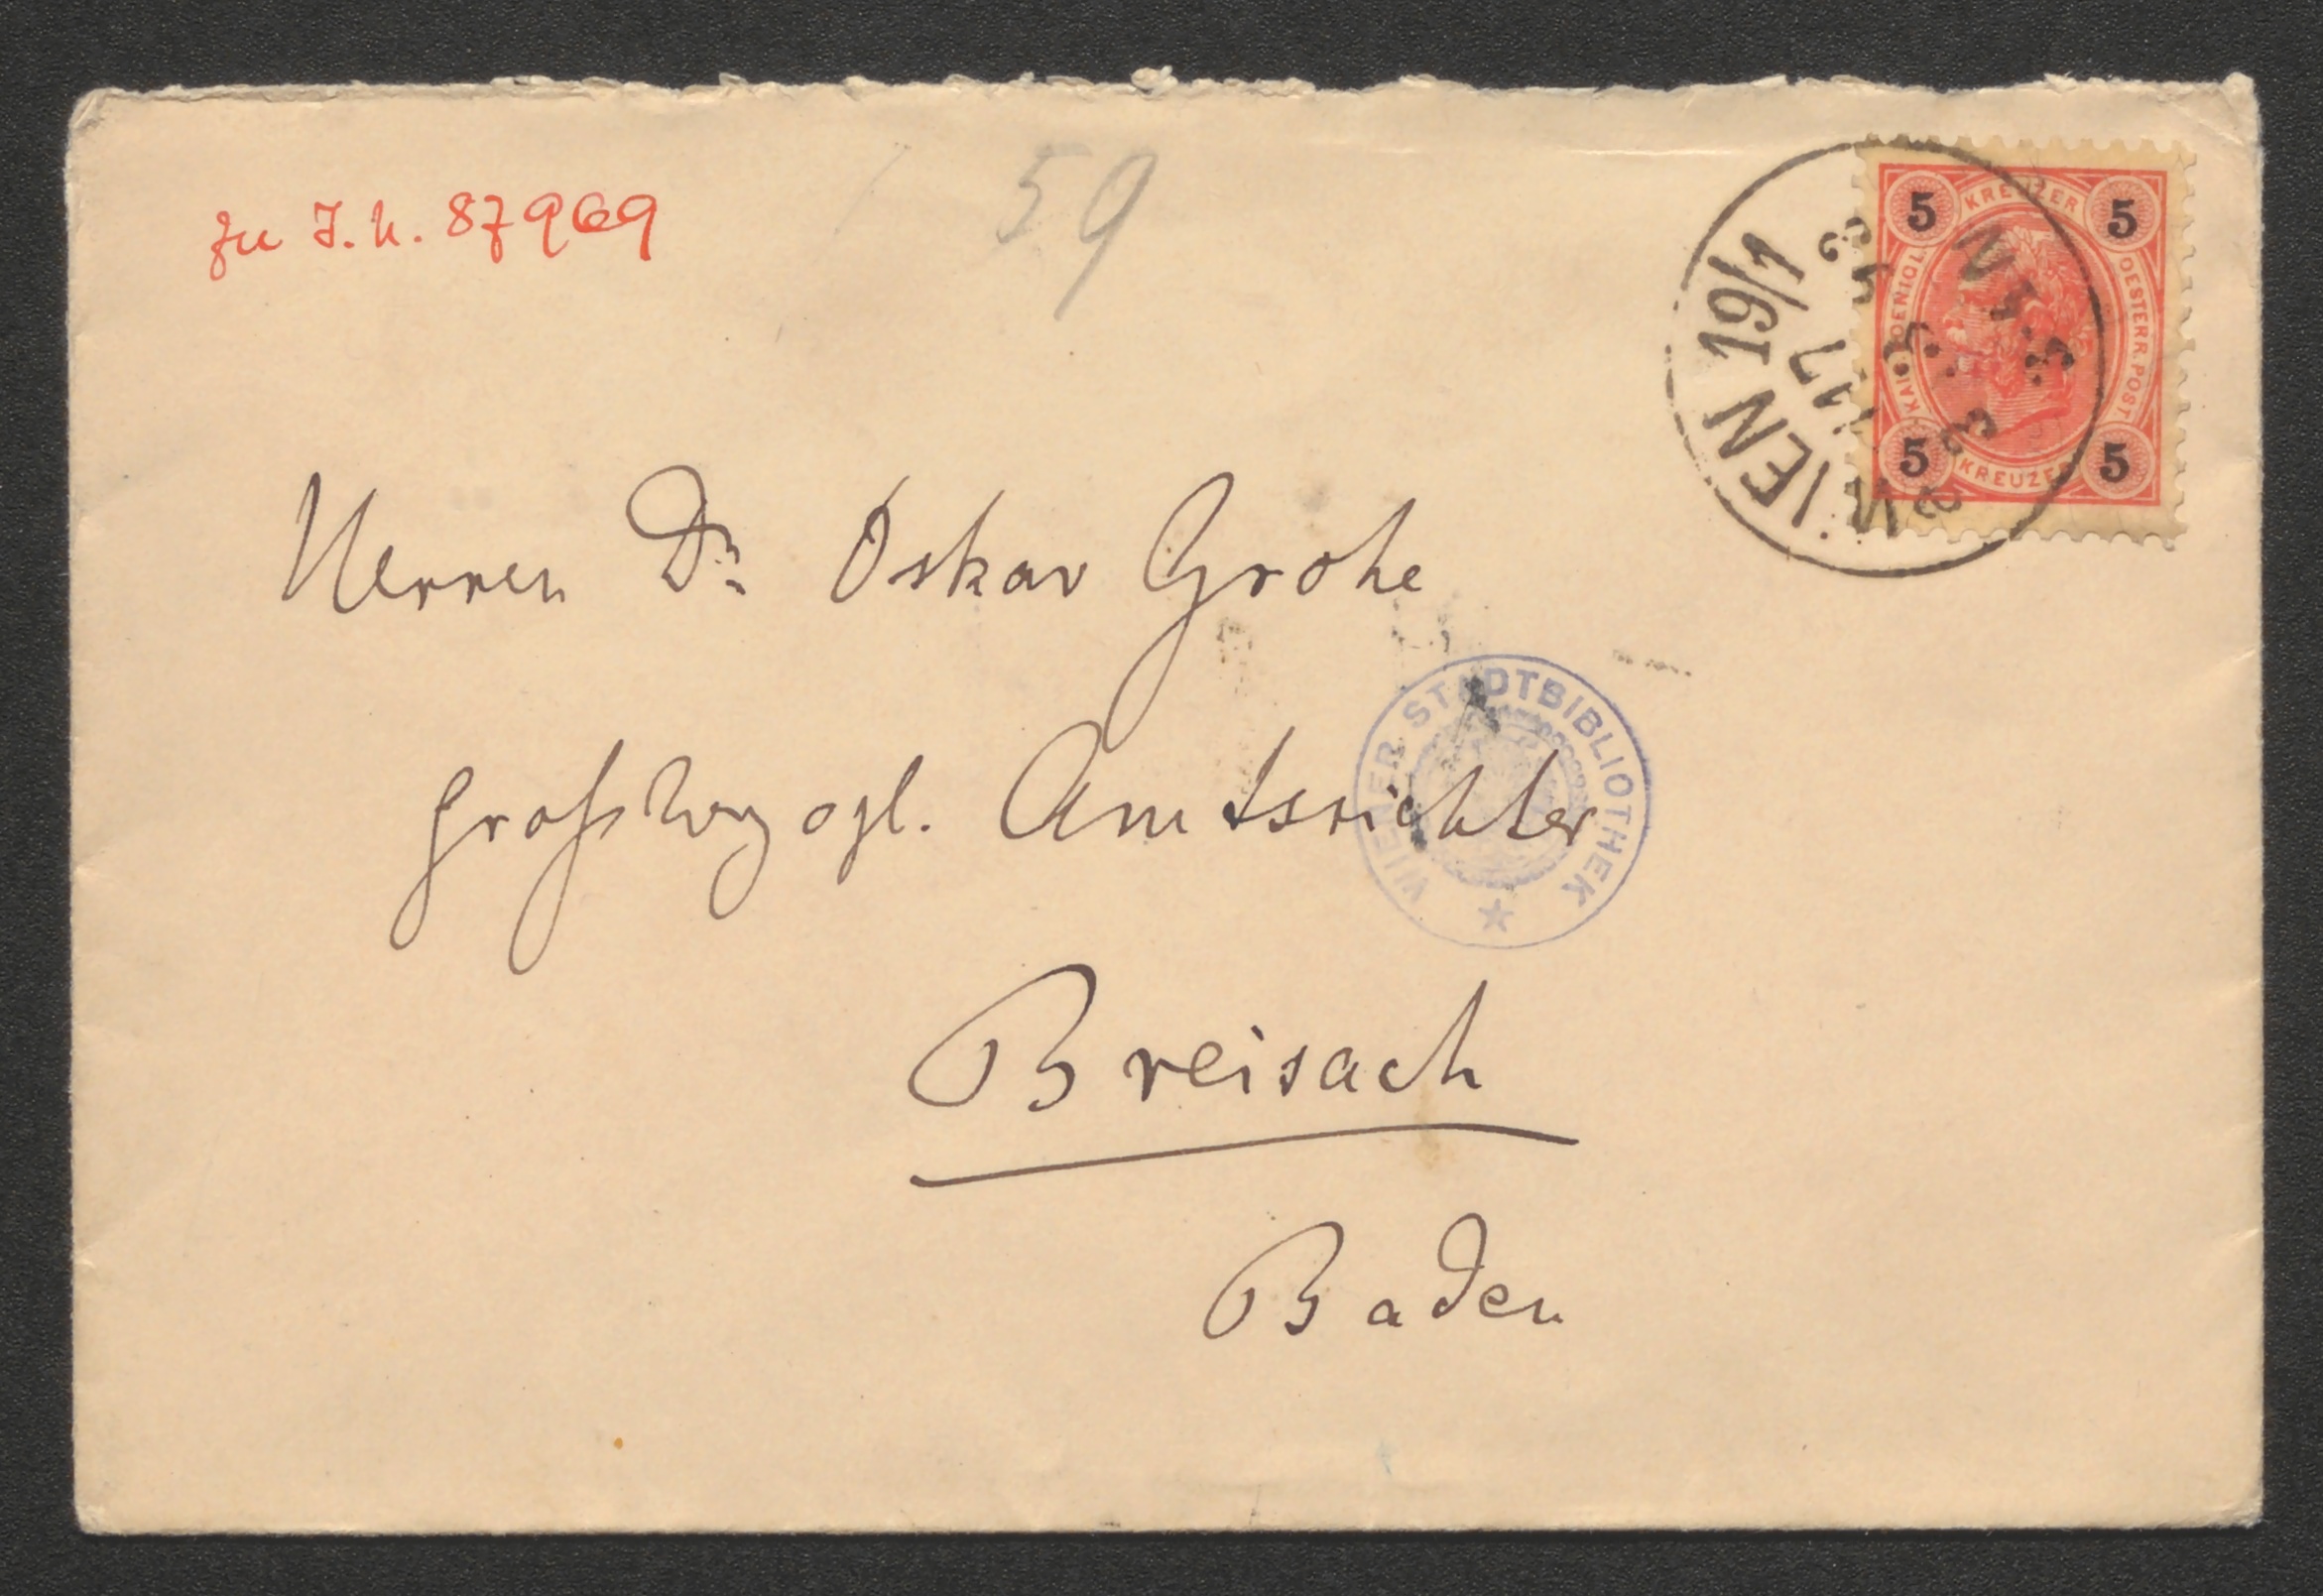 zu J.N. 87969
59
5 KREUZER 5
KAIS. KOENIGL. OESTERR. POST
5 KREUZER 5
WIEN 19/1
Herren Dr. Oskar Grohe
Großherzogl. Amtsrichter
WIENER STADTBIBLIOTHEK
Breisach
Baden